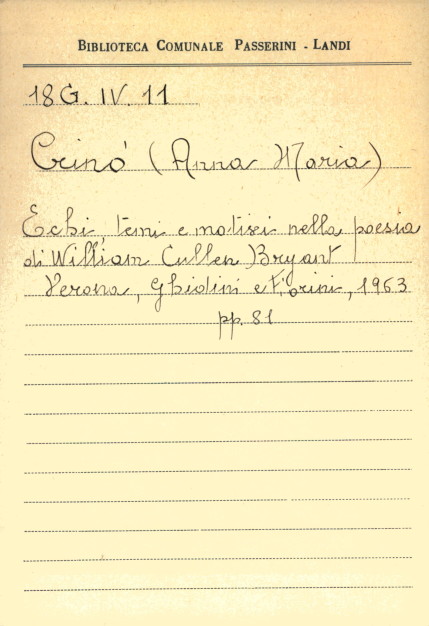 BIBLIOTECA COMUNALE PASSERINI - LANDI
18G. IV. 11
Crinò (Anna Maria)
Echi, temi e motivi nella poesia
di William Cullen Bryant
Verona, Ghidini e Fiorini, 1963
pp. 81